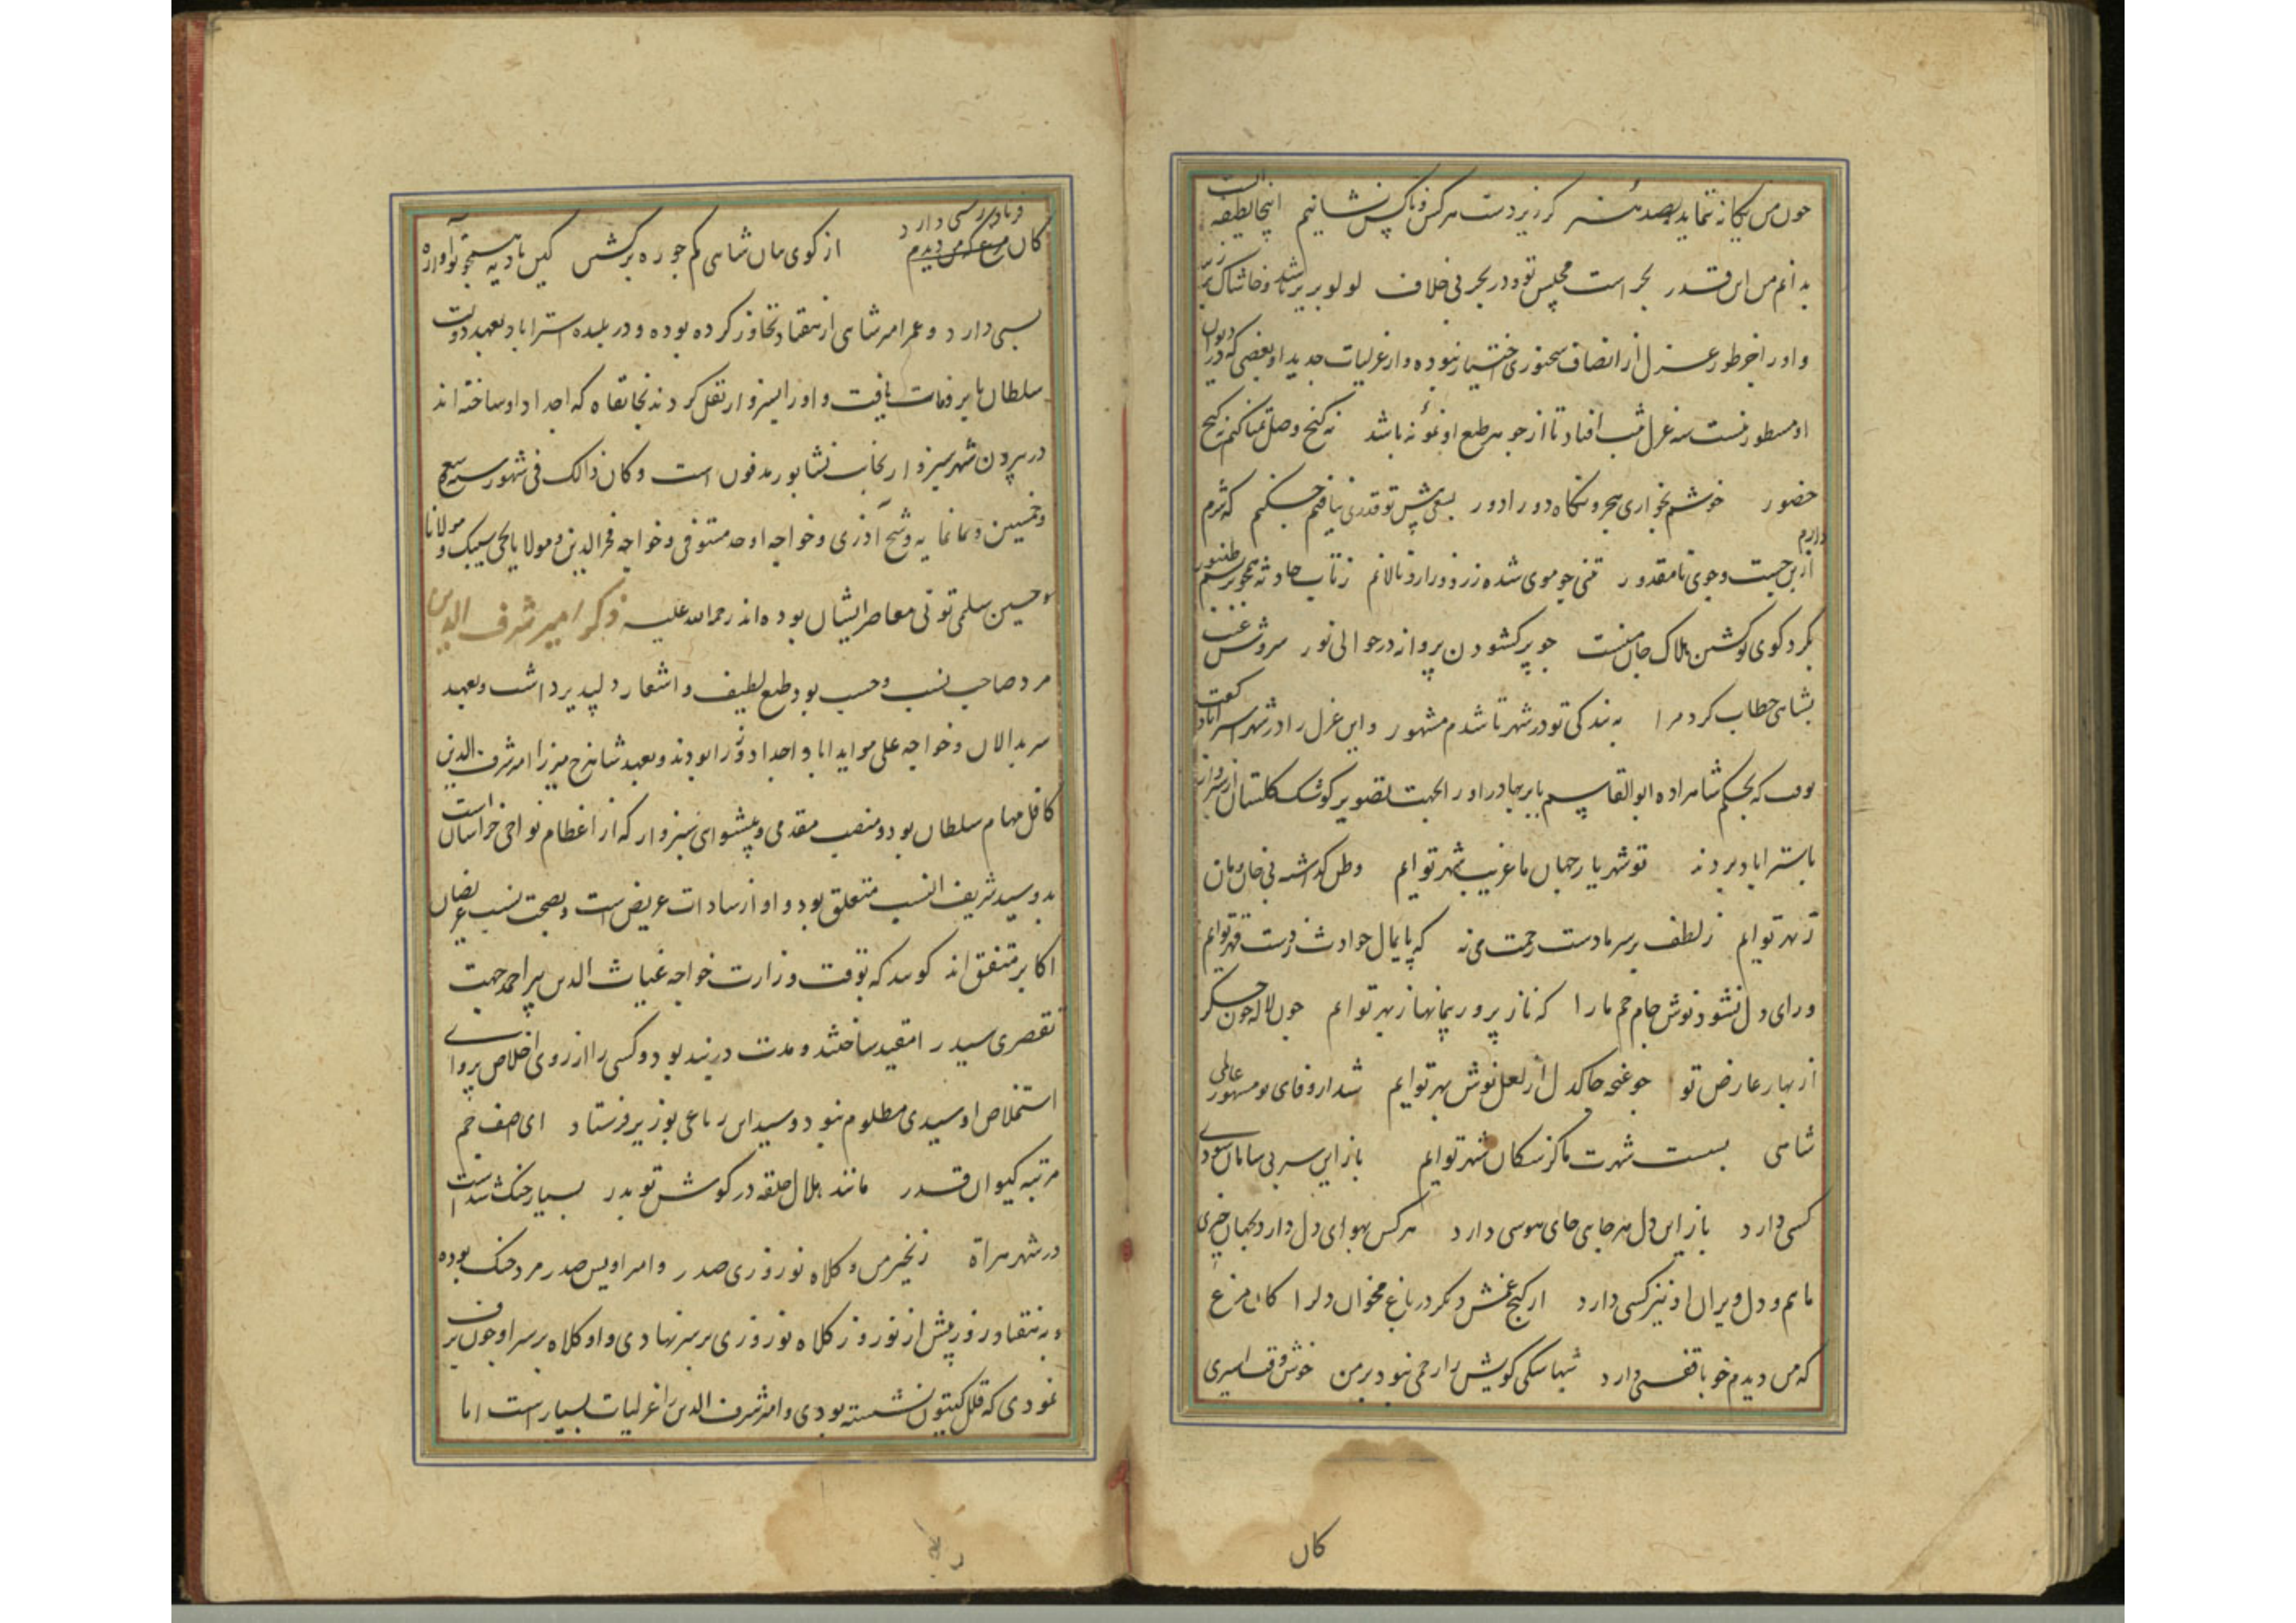 چون من یکانه ننماید بصد هنر کر زیردست هر کس و ناکس نشانیم اینجا لطیفه است
بدانم من این قدر بحر است مجلس تو و در بحر بی خلاف لولو بزیر باشد و خاشاک بر زبر
و اورا جز طور غزل از انصاف سخنوری اختیار نبوده و از غزلیات جدید او بعضی که در دیوان
او مسطور نیست سه غزل ثبت افتاد تا از جوهر طبع او نمونه باشد نه کنج وصل تمنا کنم نه کنج
حضور خوشم بخواری هجر و نکاه دورادور بسعی پیش تو قدری نیافتم چکنم که شرم دارم
ازین جست و جوی نامقدور تنی چو موی شده زرد و زار و نالانم ز تاب حادثه همچو بریشم طنبور
بکرد کوی تو کشتن هلاک جان منست چو پر کشودن پروانه در حوالی نور سروش غیب
بشاهی خطاب کرد مرا به بندکی تو در شهر تا شدم مشهور و این غزل را در شهر استراباد کفت
بوقت که بحکم شاهزاده ابوالقاسم بابر بهادر اورا بجهت تصویر کوشک کلستان از سبزوار
باستراباد بردند تو شهریار جهان ما غریب شهر توایم وطن کذاشته بی خان و مان
ز بهر توایم ز لطف بر سر ما دست رحمتی نه که پایمال حوادث ز دست قهر توایم
ورای دل نشود نوش جام جم ما را که ناز پرور پیمانها ز بهر توایم چون لاله خون جکر
از بهار عارض تو چو غنچه چاکدل از لعل نوش بهر توایم شد از وفای تو مشهور عالمی
شاهی بست شهرت ما کز سکان شهر توایم باز این سر بی سامان سودای
کسی دارد باز این دل هرجایی جای هوسی دارد هر کس بهوای دل دارد بجهان چیزی
ماییم و دل ویران او نیز کسی دارد از کنج غمش دیکر در باغ مخوان دلرا کان مرغ
که من دیدم خو با قفسی دارد شبها سکی کویش را رحمی نبود بر من خوش وقت اسیری
کان
کان مرغ که من دیدم فریادرسی دارد از کوی بتان شاهی کم جو ره برکشتن کین بادیه همچو تو آواره
بسی دارد و عمر امیر شاهی از هفتاد تجاوز کرده بوده و در بلده استراباد بعهد دولت
سلطان بابر وفات یافت و اورا بسبزوار نقل کردند بخانقاه که اجداد او ساخته اند
در بیرون شهر سبزوار بجانب نشابور مدفون است و کان ذالک فی شهور سنه سبع
و خمسین و ثمانمایه و شیخ آذری و خواجه اوحد مستوفی و خواجه فخرالدین و مولانا یحیی سیبک و مولانا
حسین سلمی تونی معاصر ایشان بوده اند رحمة الله علیه ذکر امیر شرف الدین
مرد صاحب نسب و حسب بود و طبع لطیف و اشعار دلپذیر داشت و بعهد
سربدالان و خواجه علی موید ابا و اجداد او وزرا بودند و بعهد شاهرخ میرزا امیر شرف الدین
کافل مهام سلطان بود و منصب مقدمی و پیشوای سبزوار که از اعظام نواحی خراسان است
بدو سید شریف النسب متعلق بود و او از سادات عریض است و بصحت نسب عریضان
اکابر متفق اند کویند که بوقت وزارت خواجه غیاث الدین پیر احمد جهت
تقصیری سید را مقید ساختند و مدت در بند بود و کسی را از روی اخلاص پروای
استخلاص او سیدی مظلوم نبود و سید این رباعی بوزیر فرستاد ای اصف جم
مرتبه کیوان قدر مانند هلال حلقه در کوش تو بدر بسیار خنک شد است
در شهر هراة زنجیر من و کلاه نوروزی صدر و امیر اویس صدر مرد خنک بوده
و بهفتاد روز پیش از نوروز کلاه نوروزی بر سر نهادی و او کلاه بر سر او چون برف
نمودی که قلل کیتون نشسته بودی و امیر شرف الدین را غزلیات بسیار است اما